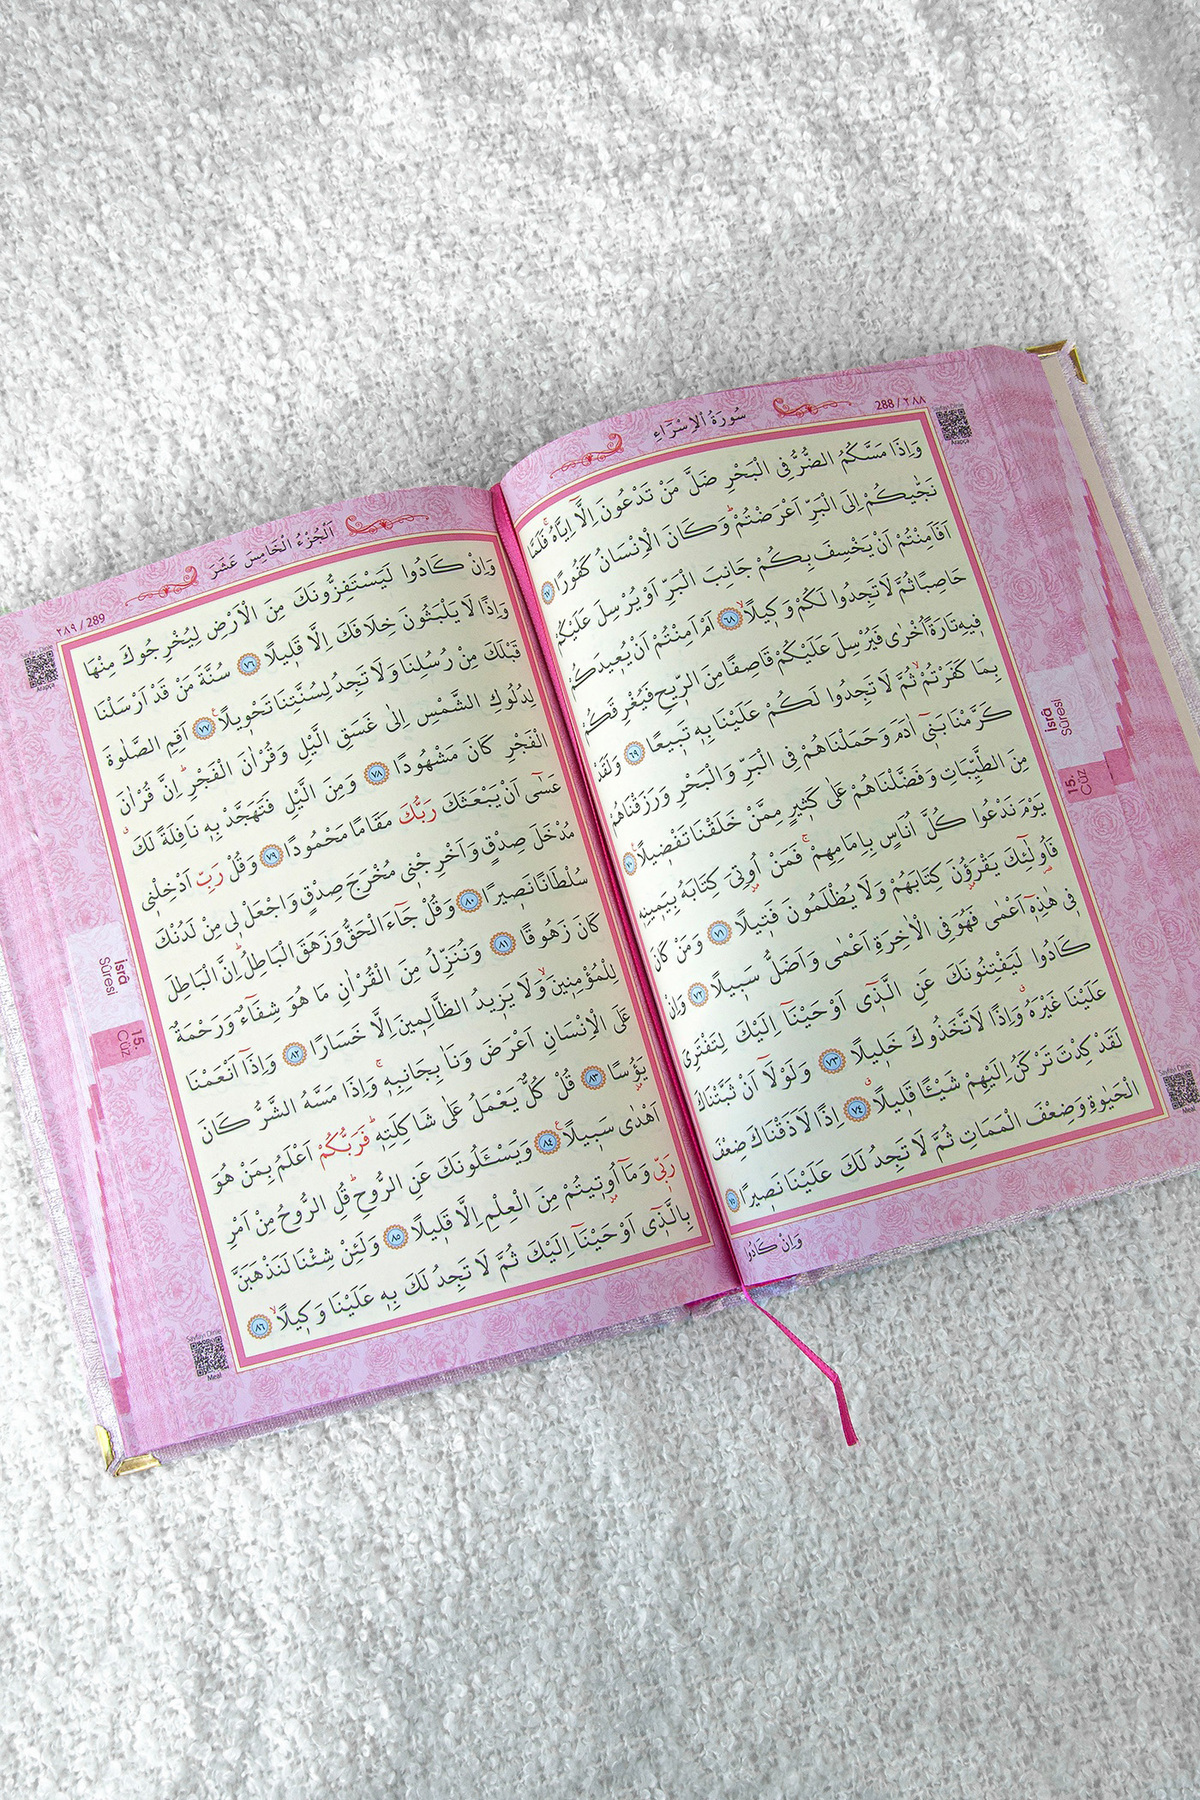 288 / ٢٨٨
سُورَةُ الْاِسْرَٓاءِ
Sayfayı Dinle
Arapça
وَاِذَا مَسَّكُمُ الضُّرُّ فِي الْبَحْرِ ضَلَّ مَنْ تَدْعُونَ اِلَّٓا اِيَّاهُۚ فَلَمَّا
نَجّٰيكُمْ اِلَى الْبَرِّ اَعْرَضْتُمْۜ وَكَانَ الْاِنْسَانُ كَفُورًا ٦٧
اَفَاَمِنْتُمْ اَنْ يَخْسِفَ بِكُمْ جَانِبَ الْبَرِّ اَوْ يُرْسِلَ عَلَيْكُمْ
حَاصِبًا ثُمَّ لَا تَجِدُوا لَكُمْ وَك۪يلًاۙ ٦٨ اَمْ اَمِنْتُمْ اَنْ يُع۪يدَكُمْ
ف۪يهِ تَارَةً اُخْرٰى فَيُرْسِلَ عَلَيْكُمْ قَاصِفًا مِنَ الرّ۪يحِ فَيُغْرِقَكُمْ
بِمَا كَفَرْتُمْۙ ثُمَّ لَا تَجِدُوا لَكُمْ عَلَيْنَا بِه۪ تَب۪يعًا ٦٩ وَلَقَدْ
كَرَّمْنَا بَن۪ٓي اٰدَمَ وَحَمَلْنَاهُمْ فِي الْبَرِّ وَالْبَحْرِ وَرَزَقْنَاهُمْ
مِنَ الطَّيِّبَاتِ وَفَضَّلْنَاهُمْ عَلٰى كَث۪يرٍ مِمَّنْ خَلَقْنَا تَفْض۪يلًا۟ ٧٠
يَوْمَ نَدْعُوا كُلَّ اُنَاسٍ بِاِمَامِهِمْۚ فَمَنْ اُو۫تِيَ كِتَابَهُ بِيَم۪ينِه۪
فَاُو۬لٰٓئِكَ يَقْرَؤُ۫نَ كِتَابَهُمْ وَلَا يُظْلَمُونَ فَت۪يلًا ٧١ وَمَنْ كَانَ
ف۪ي هٰذِه۪ٓ اَعْمٰى فَهُوَ فِي الْاٰخِرَةِ اَعْمٰى وَاَضَلُّ سَب۪يلًا ٧٢ وَاِنْ
كَادُوا لَيَفْتِنُونَكَ عَنِ الَّذ۪ٓي اَوْحَيْنَٓا اِلَيْكَ لِتَفْتَرِيَ
عَلَيْنَا غَيْرَهُۗ وَاِذًا لَاتَّخَذُوكَ خَل۪يلًا ٧٣ وَلَوْلَٓا اَنْ ثَبَّتْنَاكَ
لَقَدْ كِدْتَ تَرْكَنُ اِلَيْهِمْ شَيْـًٔا قَل۪يلًاۗ ٧٤ اِذًا لَاَذَقْنَاكَ ضِعْفَ
الْحَيٰوةِ وَضِعْفَ الْمَمَاتِ ثُمَّ لَا تَجِدُ لَكَ عَلَيْنَا نَص۪يرًا ٧٥
وَاِنْ كَادُوا
İsrâ
Sûresi
15.
Cüz
Sayfayı Dinle
Meal
٢٨٩ / 289
اَلْجُزْءُ الْخَامِسَ عَشَرَ
Arapça
وَاِنْ كَادُوا لَيَسْتَفِزُّونَكَ مِنَ الْاَرْضِ لِيُخْرِجُوكَ مِنْهَا
وَاِذًا لَا يَلْبَثُونَ خِلَافَكَ اِلَّا قَل۪يلًا ٧٦ سُنَّةَ مَنْ قَدْ اَرْسَلْنَا
قَبْلَكَ مِنْ رُسُلِنَا وَلَا تَجِدُ لِسُنَّتِنَا تَحْو۪يلًا۟ ٧٧ اَقِمِ الصَّلٰوةَ
لِدُلُوكِ الشَّمْسِ اِلٰى غَسَقِ الَّيْلِ وَقُرْاٰنَ الْفَجْرِۜ اِنَّ قُرْاٰنَ
الْفَجْرِ كَانَ مَشْهُودًا ٧٨ وَمِنَ الَّيْلِ فَتَهَجَّدْ بِه۪ نَافِلَةً لَكَۗ
عَسٰٓى اَنْ يَبْعَثَكَ رَبُّكَ مَقَامًا مَحْمُودًا ٧٩ وَقُلْ رَبِّ اَدْخِلْن۪ي
مُدْخَلَ صِدْقٍ وَاَخْرِجْن۪ي مُخْرَجَ صِدْقٍ وَاجْعَلْ ل۪ي مِنْ لَدُنْكَ
سُلْطَانًا نَص۪يرًا ٨٠ وَقُلْ جَٓاءَ الْحَقُّ وَزَهَقَ الْبَاطِلُۜ اِنَّ الْبَاطِلَ
كَانَ زَهُوقًا ٨١ وَنُنَزِّلُ مِنَ الْقُرْاٰنِ مَا هُوَ شِفَٓاءٌ وَرَحْمَةٌ
لِلْمُؤْمِن۪ينَۙ وَلَا يَز۪يدُ الظَّالِم۪ينَ اِلَّا خَسَارًا ٨٢ وَاِذَٓا اَنْعَمْنَا
عَلَى الْاِنْسَانِ اَعْرَضَ وَنَاٰ بِجَانِبِه۪ۚ وَاِذَا مَسَّهُ الشَّرُّ كَانَ
يَؤُ۫سًا ٨٣ قُلْ كُلٌّ يَعْمَلُ عَلٰى شَاكِلَتِه۪ۜ فَرَبُّكُمْ اَعْلَمُ بِمَنْ هُوَ
اَهْدٰى سَب۪يلًا۟ ٨٤ وَيَسْـَٔلُونَكَ عَنِ الرُّوحِۜ قُلِ الرُّوحُ مِنْ اَمْرِ
رَبّ۪ي وَمَٓا اُو۫ت۪يتُمْ مِنَ الْعِلْمِ اِلَّا قَل۪يلًا ٨٥ وَلَئِنْ شِئْنَا لَنَذْهَبَنَّ
بِالَّذ۪ٓي اَوْحَيْنَٓا اِلَيْكَ ثُمَّ لَا تَجِدُ لَكَ بِه۪ عَلَيْنَا وَك۪يلًاۙ ٨٦
İsrâ
Sûresi
15.
Cüz
Sayfayı Dinle
Meal